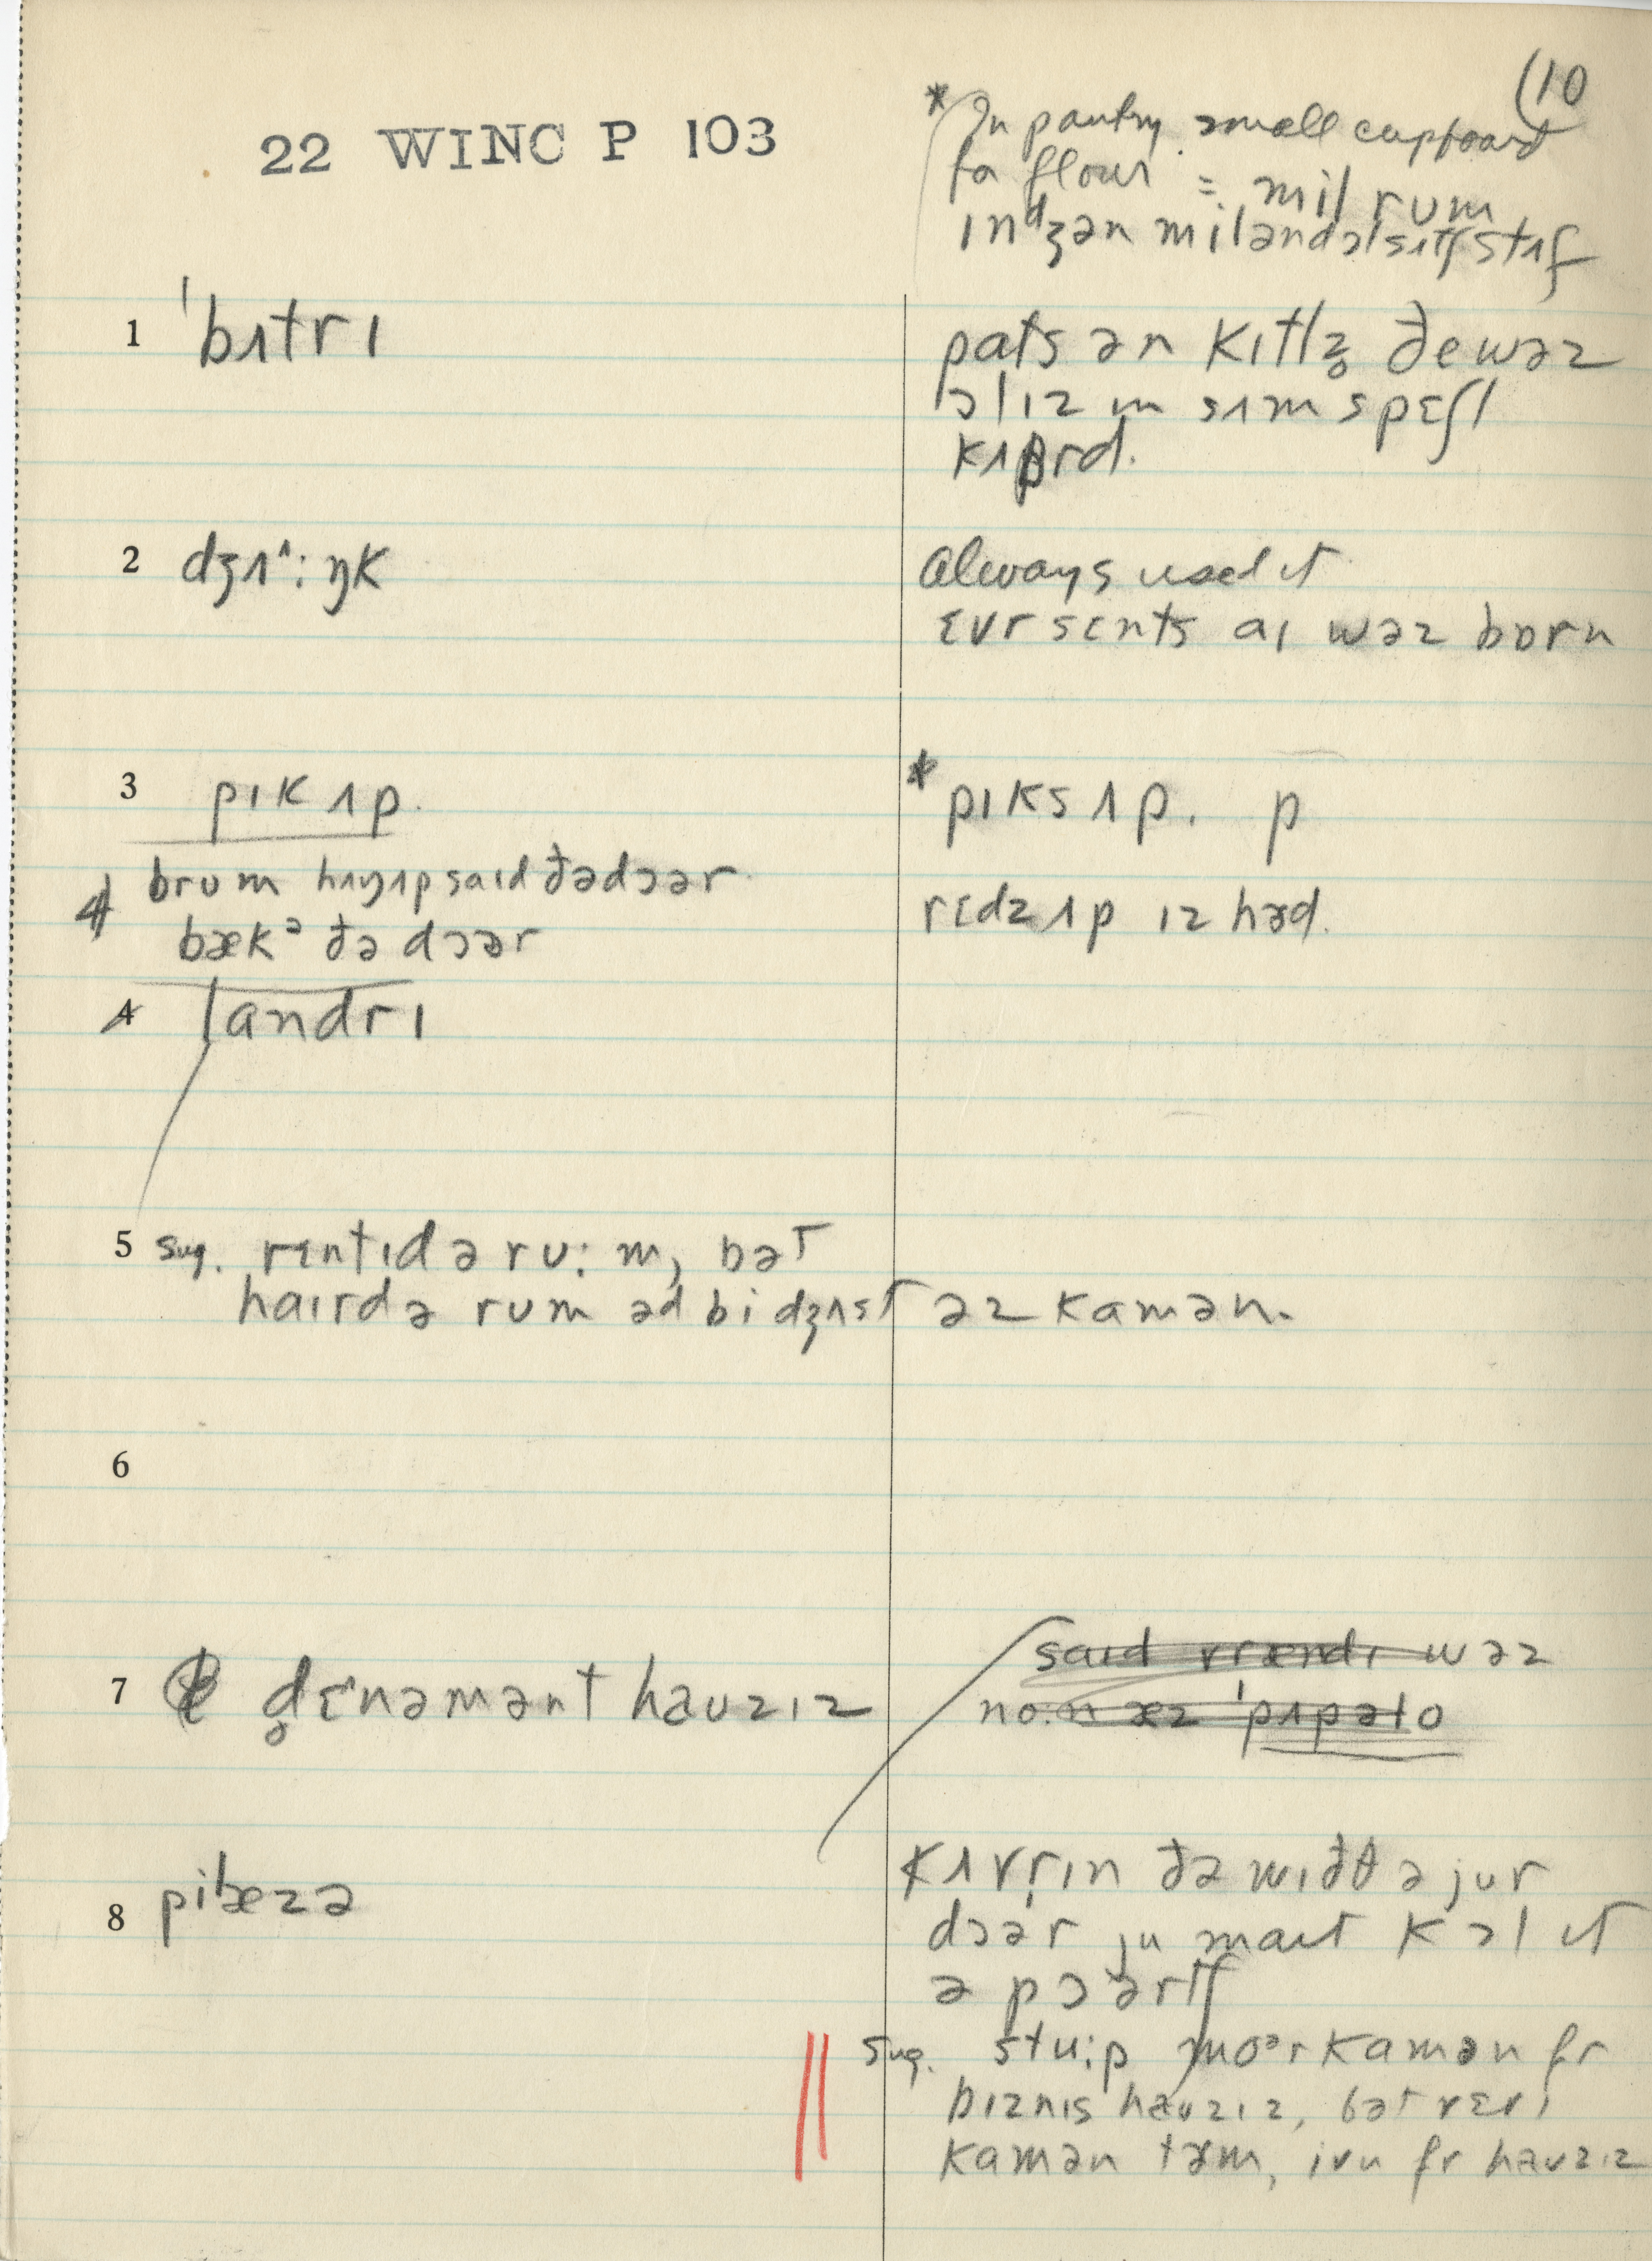 (10
22 WINC P 103
* In pantry small cupboard
for flour = mil rum
ɪndʒən miləndəlsʌtʃstʌf
1 ˈbʌtrɪ
pats ən kɪtlz̥ ðewəz
ɔlɪz ɪn sʌm spɛʃl
kʌbrd.
2 dʒʌ^:ŋk
always used it
ɛvr sɛnts aɪ wəz bɒrn
3 pɪk ʌp.
* pɪks ʌp. p
brum hʌŋʌpsaɪdðədɔər
rɛdz ʌp ɪz hɚd.
4 bækə ðə dɔər
4 landrɪ
5 sug. rɛntɪd ə rʊ:m, bət
haɪrdə rʊm əd bi dʒʌst əz kamən.
6
7 d̥ɛˑnəmənt haʊzɪz
saɪd vrændɪ wəz
no:n æz ˈpɪpəto
8 pibæzə
kʌvrɪn ðə wɪðθ ə jur
dɔər ju maɪt kɔl ɪt
ə pɔərtʃ
sug. stu:p moᵊr kamən fr
bɪznɪs haʊzɪz, bət vɛrɪ
kamən tɚm, ivn fr haʊzɪz